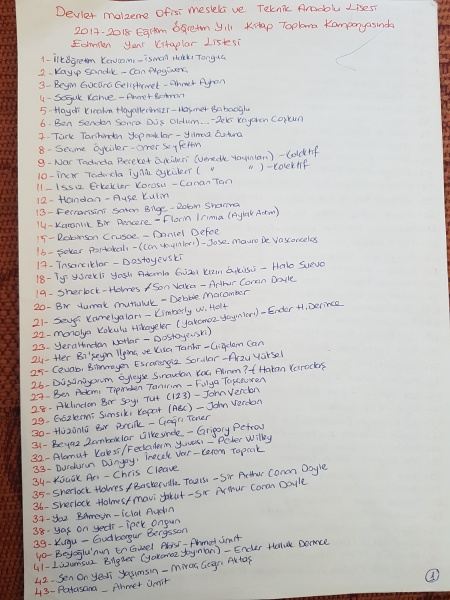 Devlet Malzeme Ofisi Mesleki ve Teknik Anadolu Lisesi
2017-2018 Eğitim Öğretim Yılı Kitap Toplama Kampanyasında
Edinilen Yeni Kitaplar Listesi
1- İlköğretim Kavramı - İsmail Hakkı Tonguç
2- Kayıp Sandık - Can Alpgüvenç
3- Beyin Gücünü Geliştirmek - Ahmet Ayhan
4- Soğuk Kahve - Ahmet Batman
5- Haydi Kıralım Hayallerimizi - Haşmet Babaoğlu
6- Ben Senden Sonra Düş Oldum... - Zeki Kayahan Coşkun
7- Türk Tarihinden Yapraklar - Yılmaz Öztuna
8- Seçme Öyküler - Ömer Seyfettin
9- Nar Tadında Bereket Öyküleri (Venedik Yayınları) - Kolektif
10- İncir Tadında İyilik Öyküleri ( " " ) - Kolektif
11- Issız Erkekler Korosu - Canan Tan
12- Handan - Ayşe Kulin
13- Ferrarisini Satan Bilge - Robin Sharma
14- Karanlık Bir Pencere - Florin Irimia (Aylak Adam)
15- Robinson Crusoe - Daniel Defoe
16- Şeker Portakalı - (Can Yayınları) - Jose Mauro De Vasconcelos
17- İnsancıklar - Dostoyevski
18- İyi Yürekli Yaşlı Adamla Güzel Kızın Öyküsü - Italo Svevo
19- Sherlock - Holmes / Son Vaka - Arthur Conan Doyle
20- Bir Yumak Mutluluk - Debbie Macomber
21- Sevgi Kamelyaları - Kimberly W. Holt
22- Manolya Kokulu Hikayeler (Yakamoz Yayınları) - Ender H. Derince
23- Yeraltından Notlar - Dostoyevski
24- Her Bi'şeyin İlginç ve Kısa Tarihi - Çiğdem Can
25- Cevabı Bilinmeyen Esrarengiz Sorular - Arzu Yüksel
26- Düşünüyorum Öyleyse Sınavdan Kaç Alırım? - Hakan Karadaş
27- Ben Adamı Tipinden Tanırım - Fulya Taşçeviren
28- Aklından Bir Sayı Tut (123) - John Verdon
29- Gözlerini Sımsıkı Kapat (ABC) - John Verdon
30- Hüzünlü Bir Perilik - Çağrı Taner
31- Beyaz Zambaklar Ülkesinde - Grigory Petrov
32- Alamut Kalesi / Fedailerin Yuvası - Peter Willey
33- Durdurun Dünyayı İnecek Var - Kerem Toprak
34- Küçük Arı - Chris Cleave
35- Sherlock Holmes / Baskerville Tazısı - Sir Arthur Conan Doyle
36- Sherlock Holmes / Mavi Yakut - Sir Arthur Conan Doyle
37- Yaz Bitmesin - İclal Aydın
38- Yaş On Yedi - İpek Ongun
39- Kuşku - Gudbergur Bergsson
40- Beyoğlu'nun En Güzel Abisi - Ahmet Ümit
41- Lüzumsuz Bilgiler (Yakamoz Yayınları) - Ender Haluk Derince
42- Sen On Yedi Yaşımsın - Miraç Çağrı Aktaş
43- Patasana - Ahmet Ümit
1